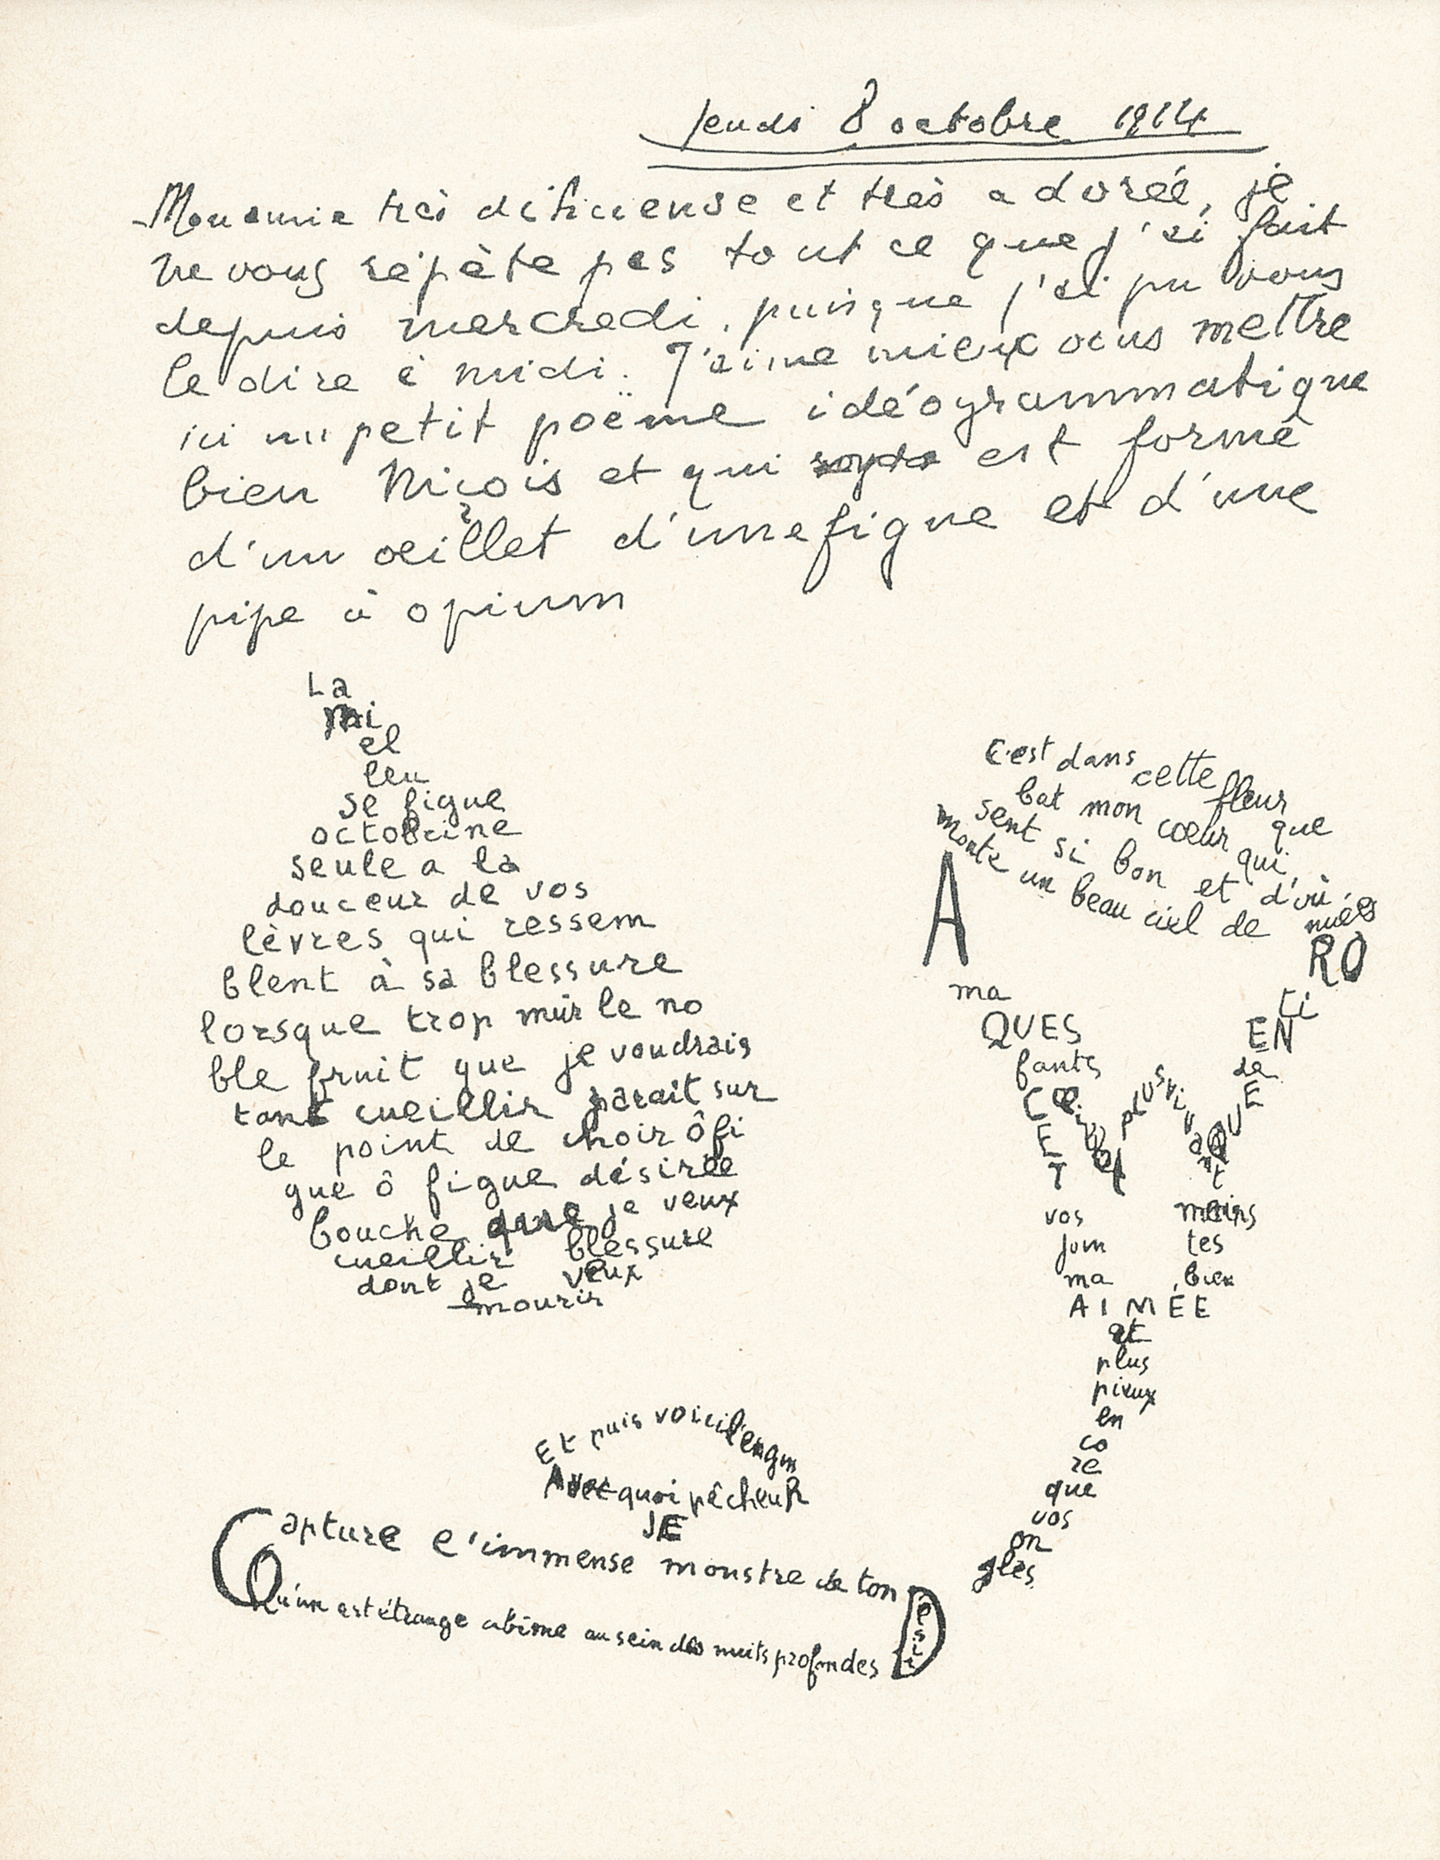 Jeudi 8 octobre 1914
Mon amie très et très adorée, je
ne vous répète pas tout ce que j'ai fait
depuis mercredi, puisque j'ai pu vous
le dire à midi. J'aime mieux vous mettre
ici un petit poëme idéogrammatique
bien Niçois et qui est formé
d'un œillet d'une figue et d'une
pipe à opium
La
mi
el
leu
se figue
octobrine
seule a la
douceur de vos
lèvres qui ressem
blent à sa blessure
lorsque trop mûr le no
ble fruit que je voudrais
tant cueillir paraît sur
le point de choir ô fi
gue ô figue désirée
bouche que je veux
cueillir blessure
dont je veux
mourir
C'est dans cette fleur
bat mon cœur que
sent si bon et qui,
monte un beau ciel de nuées
d'où
A RO
ma ti
QUES EN
fants de
CET
plus vivant
QUE
vos mains
join tes
ma bien
AIMÉE
et
plus
pieux
en
co
re
que
vos
on
gles
Et puis voici l'engin
Avec quoi pêcheuR
JE
Capture l'immense monstre de ton
Désir
Qu'un est étrange abîme au sein des nuits profondes